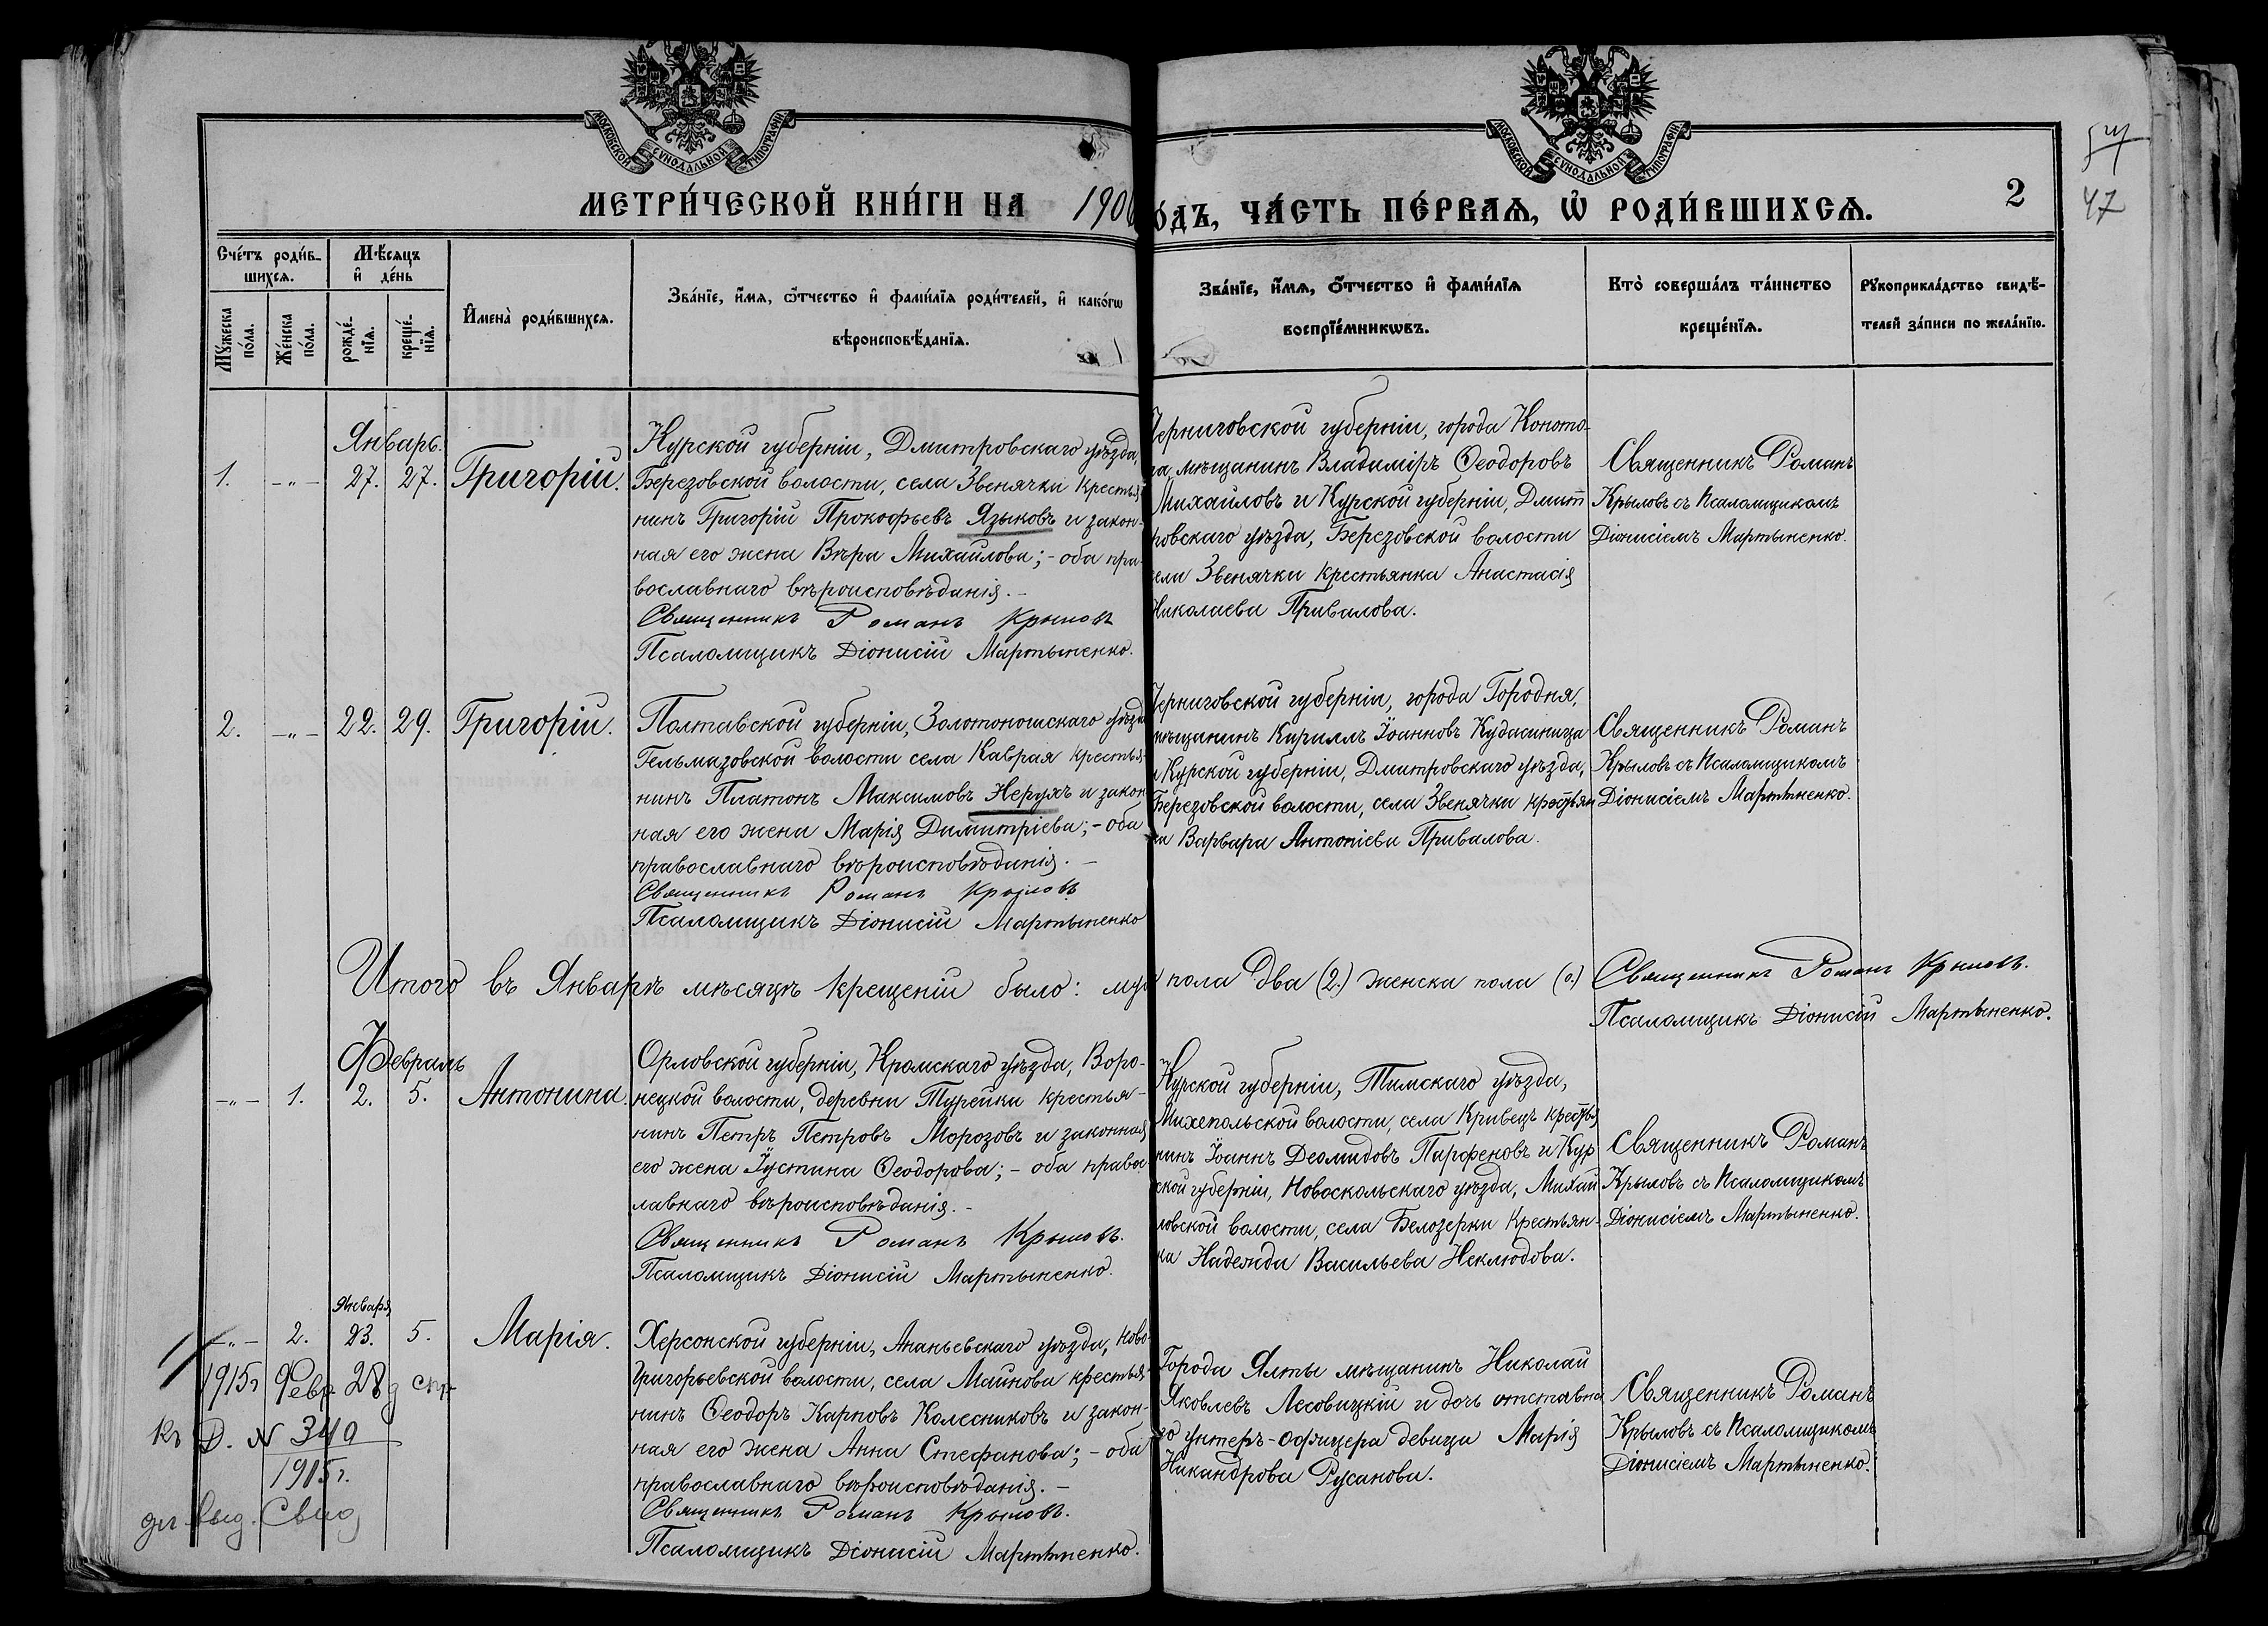 МОСКОВСКОЙ СѴНОДАЛЬНОЙ ТИПОГРАФІИ
МОСКОВСКОЙ СѴНОДАЛЬНОЙ ТИПОГРАФІИ
МЕТРИ́ЧЕСКОЙ КНИ́ГИ НА 1906
О́ДЪ, ЧА́СТЬ ПЕ́РВАѦ, Ѡ҆ РОДИ́ВШИХСѦ.
2
47
Сче́тъ роди́в-
шихсѧ.
Мꙋ́жеска
по́ла.
Же́нска
по́ла.
Мѣ́сѧцъ
и҆ де́нь
рожде́-
нїѧ.
креще́-
нїѧ.
И҆мена̀ роди́вшихсѧ.
Зва́нїе, и҆́мѧ, ѻ҆́тчество и҆ фами́лїѧ роди́телей, и҆ како́гѡ
вѣроисповѣ́данїѧ.
Зва́нїе, и҆́мѧ, ѻ҆́тчество и҆ фами́лїѧ
воспрїе́мникѡвъ.
Кто̀ соверша́лъ та́инство
креще́нїѧ.
Рꙋкоприкла́дство свидѣ́-
телей за́писи по жела́нїю.
Январь.
1. -"- 27. 27. Григорій.
Курской губерніи, Дмитровскаго уѣзда,
Березовской волости, села Звенячки крестья
нинъ Григорій Прокофьевъ Языковъ и закон-
ная его жена Вѣра Михаилова; - оба пра-
вославнаго вѣроисповѣданія. -
Священникъ Романъ Крыловъ
Псаломщикъ Діонисій Мартыненко.
Черниговской губерніи, города Коното-
па мѣщанинъ Владиміръ Ѳеодоровъ
Михаиловъ и Курской губерніи, Дмит
ровскаго уѣзда, Березовской волости
села Звенячки крестьянка Анастасія
Николаева Привалова.
Священникъ Романъ
Крыловъ съ Псаломщикомъ
Діонисіемъ Мартыненко.
2. -"- 22. 29. Григорій.
Полтавской губерніи, Золотоношскаго уѣзда
Гельмязовской волости села Каврая крестья-
нинъ Платонъ Максимовъ Неруяъ и закон
ная его жена Марія Димитріева; - оба
православнаго вѣроисповѣданія. -
Священникъ Романъ Крыловъ
Псаломщикъ Діонисій Мартыненко
Черниговской губерніи, города Городня,
мѣщанинъ Кириллъ Іоанновъ Кудасиница
и Курской губерніи, Дмитровскаго уѣзда,
Березовской волости, села Звенячки крестьян
ка Варвара Антоніева Привалова.
Священникъ Романъ
Крыловъ съ Псаломщикомъ
Діонисіемъ Мартыненко.
Итого въ Январѣ мѣсяцѣ крещеній было: муж пола два (2.) женска пола (0.)
Священникъ Романъ Крыловъ.
Псаломщикъ Діонисій Мартыненко.
Февраль
-"- 1. 2. 5. Антонина.
Орловской губерніи, Кромскаго уѣзда, Воро-
нецкой волости, деревни Турейки крестья-
нинъ Петръ Петровъ Морозовъ и законная
его жена Іустина Ѳеодорова; - оба правос
лавнаго вѣроисповѣданія. -
Священникъ Романъ Крыловъ.
Псаломщикъ Діонисій Мартыненко.
Курской губерніи, Тимскаго уѣзда,
Михепольской волости, села Кривецъ крестья
нинъ Іоаннъ Деомидовъ Парфеновъ и Кур
ской губерніи, Новоскольскаго уѣзда, Михай
ловской волости, села Белозерки крестьян-
ка Надежда Васильева Неклюдова.
Священникъ Романъ
Крыловъ съ Псаломщикомъ
Діонисіемъ Мартыненко.
Января
-"- 2. 23. 5. Марія.
Херсонской губерніи, Ананьевскаго уѣзда, Ново-
григорьевской волости, села Маинова крестья-
нинъ Ѳеодоръ Карповъ Колесниковъ и закон-
ная его жена Анна Стефанова; - оба
православнаго вѣроисповѣданія. -
Священникъ Романъ Крыловъ.
Псаломщикъ Діонисій Мартыненко.
Города Ялты мѣщанинъ Николай
Яковлевъ Лесовицкій и дочь отставна
го унтеръ-офицера девица Марія
Никандрова Русанова.
Священникъ Романъ
Крыловъ съ Псаломщикомъ
Діонисіемъ Мартыненко.
1915г Февр. 28
къ Д. N 340
1915г.
выд. Свид